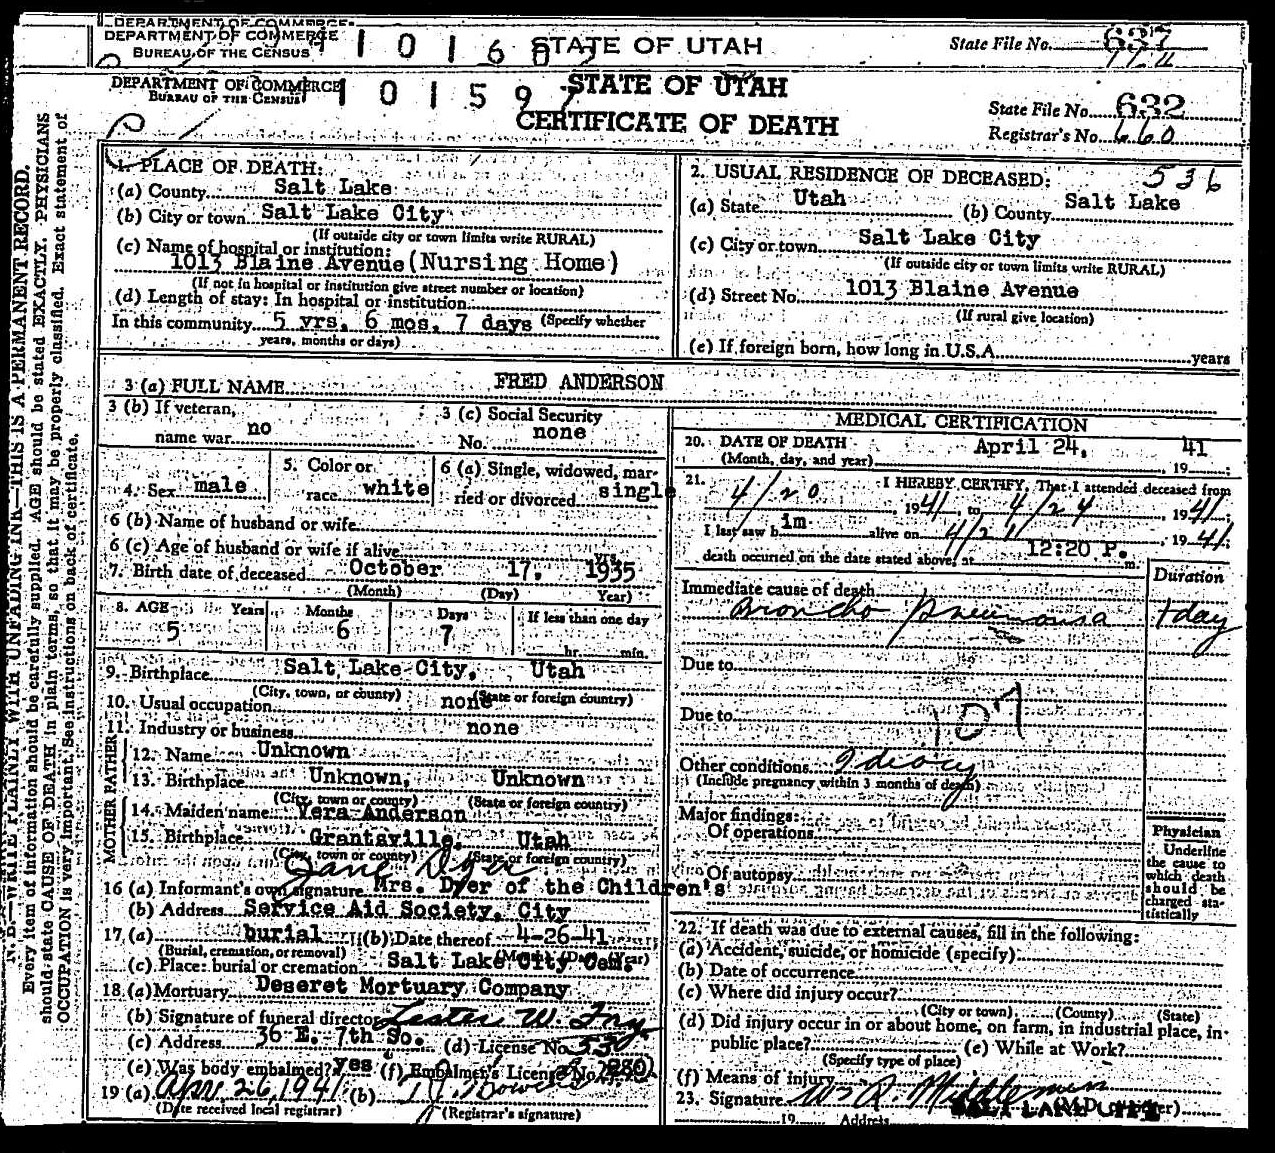 DEPARTMENT OF COMMERCE
DEPARTMENT OF COMMERCE
BUREAU OF THE CENSUS
STATE OF UTAH
State File No. 637
DEPARTMENT OF COMMERCE
BUREAU OF THE CENSUS
101597
STATE OF UTAH
CERTIFICATE OF DEATH
State File No. 632
Registrar's No. 660
N. B.—WRITE PLAINLY WITH UNFADING INK—THIS IS A PERMANENT RECORD.
Every item of information should be carefully supplied. AGE should be stated EXACTLY. PHYSICIANS
should state CAUSE OF DEATH in plain terms, so that it may be properly classified. Exact statement of
OCCUPATION is very important. See instructions on back of certificate.
1. PLACE OF DEATH:
(a) County Salt Lake
(b) City or town Salt Lake City
(If outside city or town limits write RURAL)
(c) Name of hospital or institution:
1013 Blaine Avenue (Nursing Home)
(If not in hospital or institution give street number or location)
(d) Length of stay: In hospital or institution
In this community 5 yrs. 6 mos. 7 days (Specify whether
years, months or days)
2. USUAL RESIDENCE OF DECEASED: 536
(a) State Utah (b) County Salt Lake
(c) City or town Salt Lake City
(If outside city or town limits write RURAL)
(d) Street No. 1013 Blaine Avenue
(If rural give location)
(e) If foreign born, how long in U.S.A. years
3 (a) FULL NAME FRED ANDERSON
3 (b) If veteran,
name war no
3 (c) Social Security
No. none
4. Sex male
5. Color or
race white
6 (a) Single, widowed, mar-
ried or divorced single
6 (b) Name of husband or wife
6 (c) Age of husband or wife if alive yrs.
7. Birth date of deceased October 17, 1935
(Month) (Day) Year)
8. AGE Years Months Days If less than one day
5 6 7 hr. min.
9. Birthplace Salt Lake City, Utah
(City, town, or county) (State or foreign country)
10. Usual occupation none
11. Industry or business none
FATHER
12. Name Unknown
13. Birthplace Unknown, Unknown
(City, town or county) (State or foreign country)
MOTHER
14. Maiden name Vera Anderson
15. Birthplace Grantsville, Utah
(City, town or county) (State or foreign country)
Jane Dyer
16 (a) Informant's own signature Mrs. Dyer of the Children's
(b) Address Service Aid Society, City
17. (a) burial (b) Date thereof 4-26-41
(Burial, cremation, or removal) (Month) (Day) (Year)
(c) Place: burial or cremation Salt Lake City Cem.
18. (a) Mortuary Deseret Mortuary Company
(b) Signature of funeral director Lester W.
(c) Address 36 E. 7th So. (d) License No. 530
(e) Was body embalmed? yes (f) Embalmer's License No. 280
19 (a) Apr. 26, 1941 (b)
(Date received local registrar) (Registrar's signature)
MEDICAL CERTIFICATION
20. DATE OF DEATH April 24, 1941
(Month, day, and year)
21. I HEREBY CERTIFY, That I attended deceased from
4/20, 1941, to 4/24, 1941;
I last saw him alive on 4/21, 1941;
death occurred on the date stated above, at 12:20 P. m.
Duration
Immediate cause of death
Broncho pneumonia 1 day
Due to
Due to
107
Other conditions Idiocy
(Include pregnancy within 3 months of death)
Major findings:
Of operations
Of autopsy
Physician
Underline
the cause to
which death
should be
charged sta-
tistically
22. If death was due to external causes, fill in the following:
(a) Accident, suicide, or homicide (specify)
(b) Date of occurrence
(c) Where did injury occur?
(City or town) (County) (State)
(d) Did injury occur in or about home, on farm, in industrial place, in-
public place? (e) While at Work?
(Specify type of place)
(f) Means of injury
23. Signature
SALT LAKE CITY
19 Address